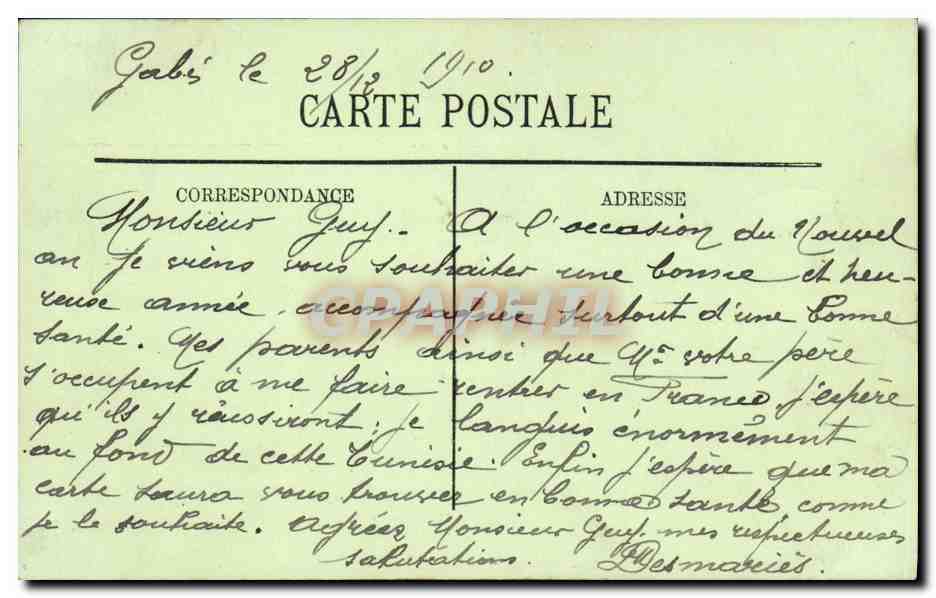 Gabès le 28/12 1910.
CARTE POSTALE
CORRESPONDANCE
ADRESSE
Monsieur Guy. A l'occasion du Nouvel
an je viens vous souhaiter une bonne et heu-
reuse année, accompagnée surtout d'une bonne
GRAPHIL
santé. Mes parents ainsi que Mr votre père
s'occupent à me faire rentrer en France, j'espère
qu'ils y réussiront; je languis énormément
au fond de cette Tunisie. Enfin j'espère que ma
carte saura vous trouver en bonne santé, comme
je le souhaite. Agréez Monsieur Guy. mes respectueuses
salutations. Desmariés.